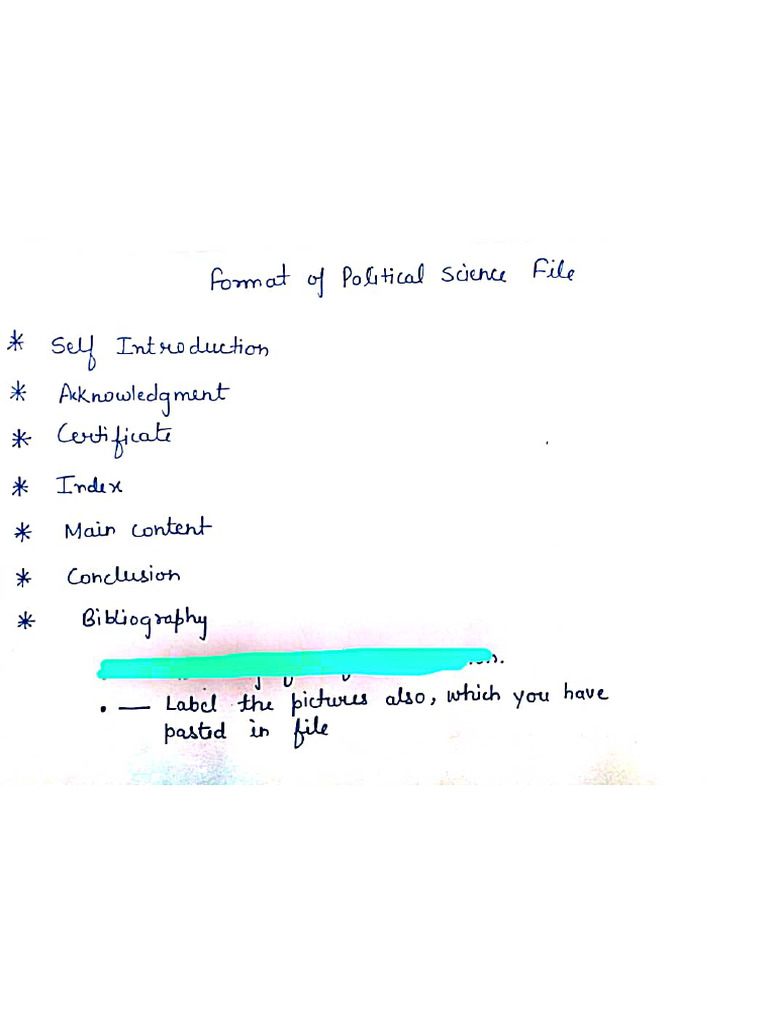 Format of Political Science File
* Self Introduction
* Acknowledgment
* Certificate
* Index
* Main content
* Conclusion
* Bibliography
• — Label the pictures also, which you have
pasted in file